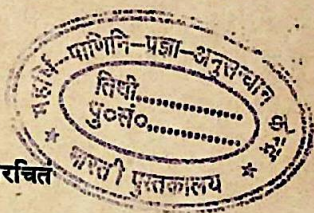 महर्षि-पाणिनि-प्रज्ञा-अनुसन्धान
तिथी..................
पु०सं०..................
* भारती पुस्तकालय *
रचित